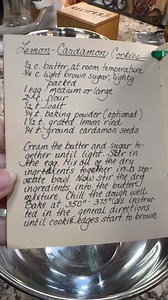 Lemon-Cardamon Cookies
1/2 c. butter, at room temperature
3/4 c. light brown sugar, lightly
packed
1 egg - medium or large
2 c. flour
1/2 t. salt
1/4 t. baking powder (optional)
1 1/2 t. grated lemon rind
3/4 t. ground cardamon seeds
Cream the butter and sugar to-
gether until light. Stir in
the egg. Mix all of the dry
ingredients together in a sep-
arate bowl. Now stir the dry
ingredients into the butter
mixture. Chill the dough well.
Bake at 350°-375° as instruc-
ted in the general directions
until cookie edges start to brown.